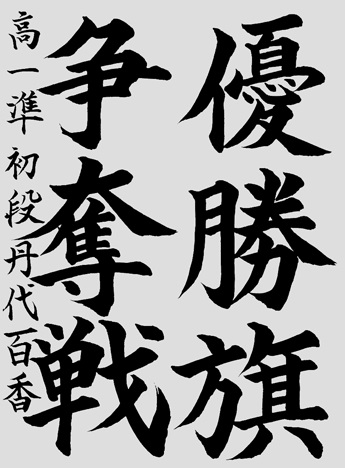 優勝旗
争奪戦
高一準初段丹代百香